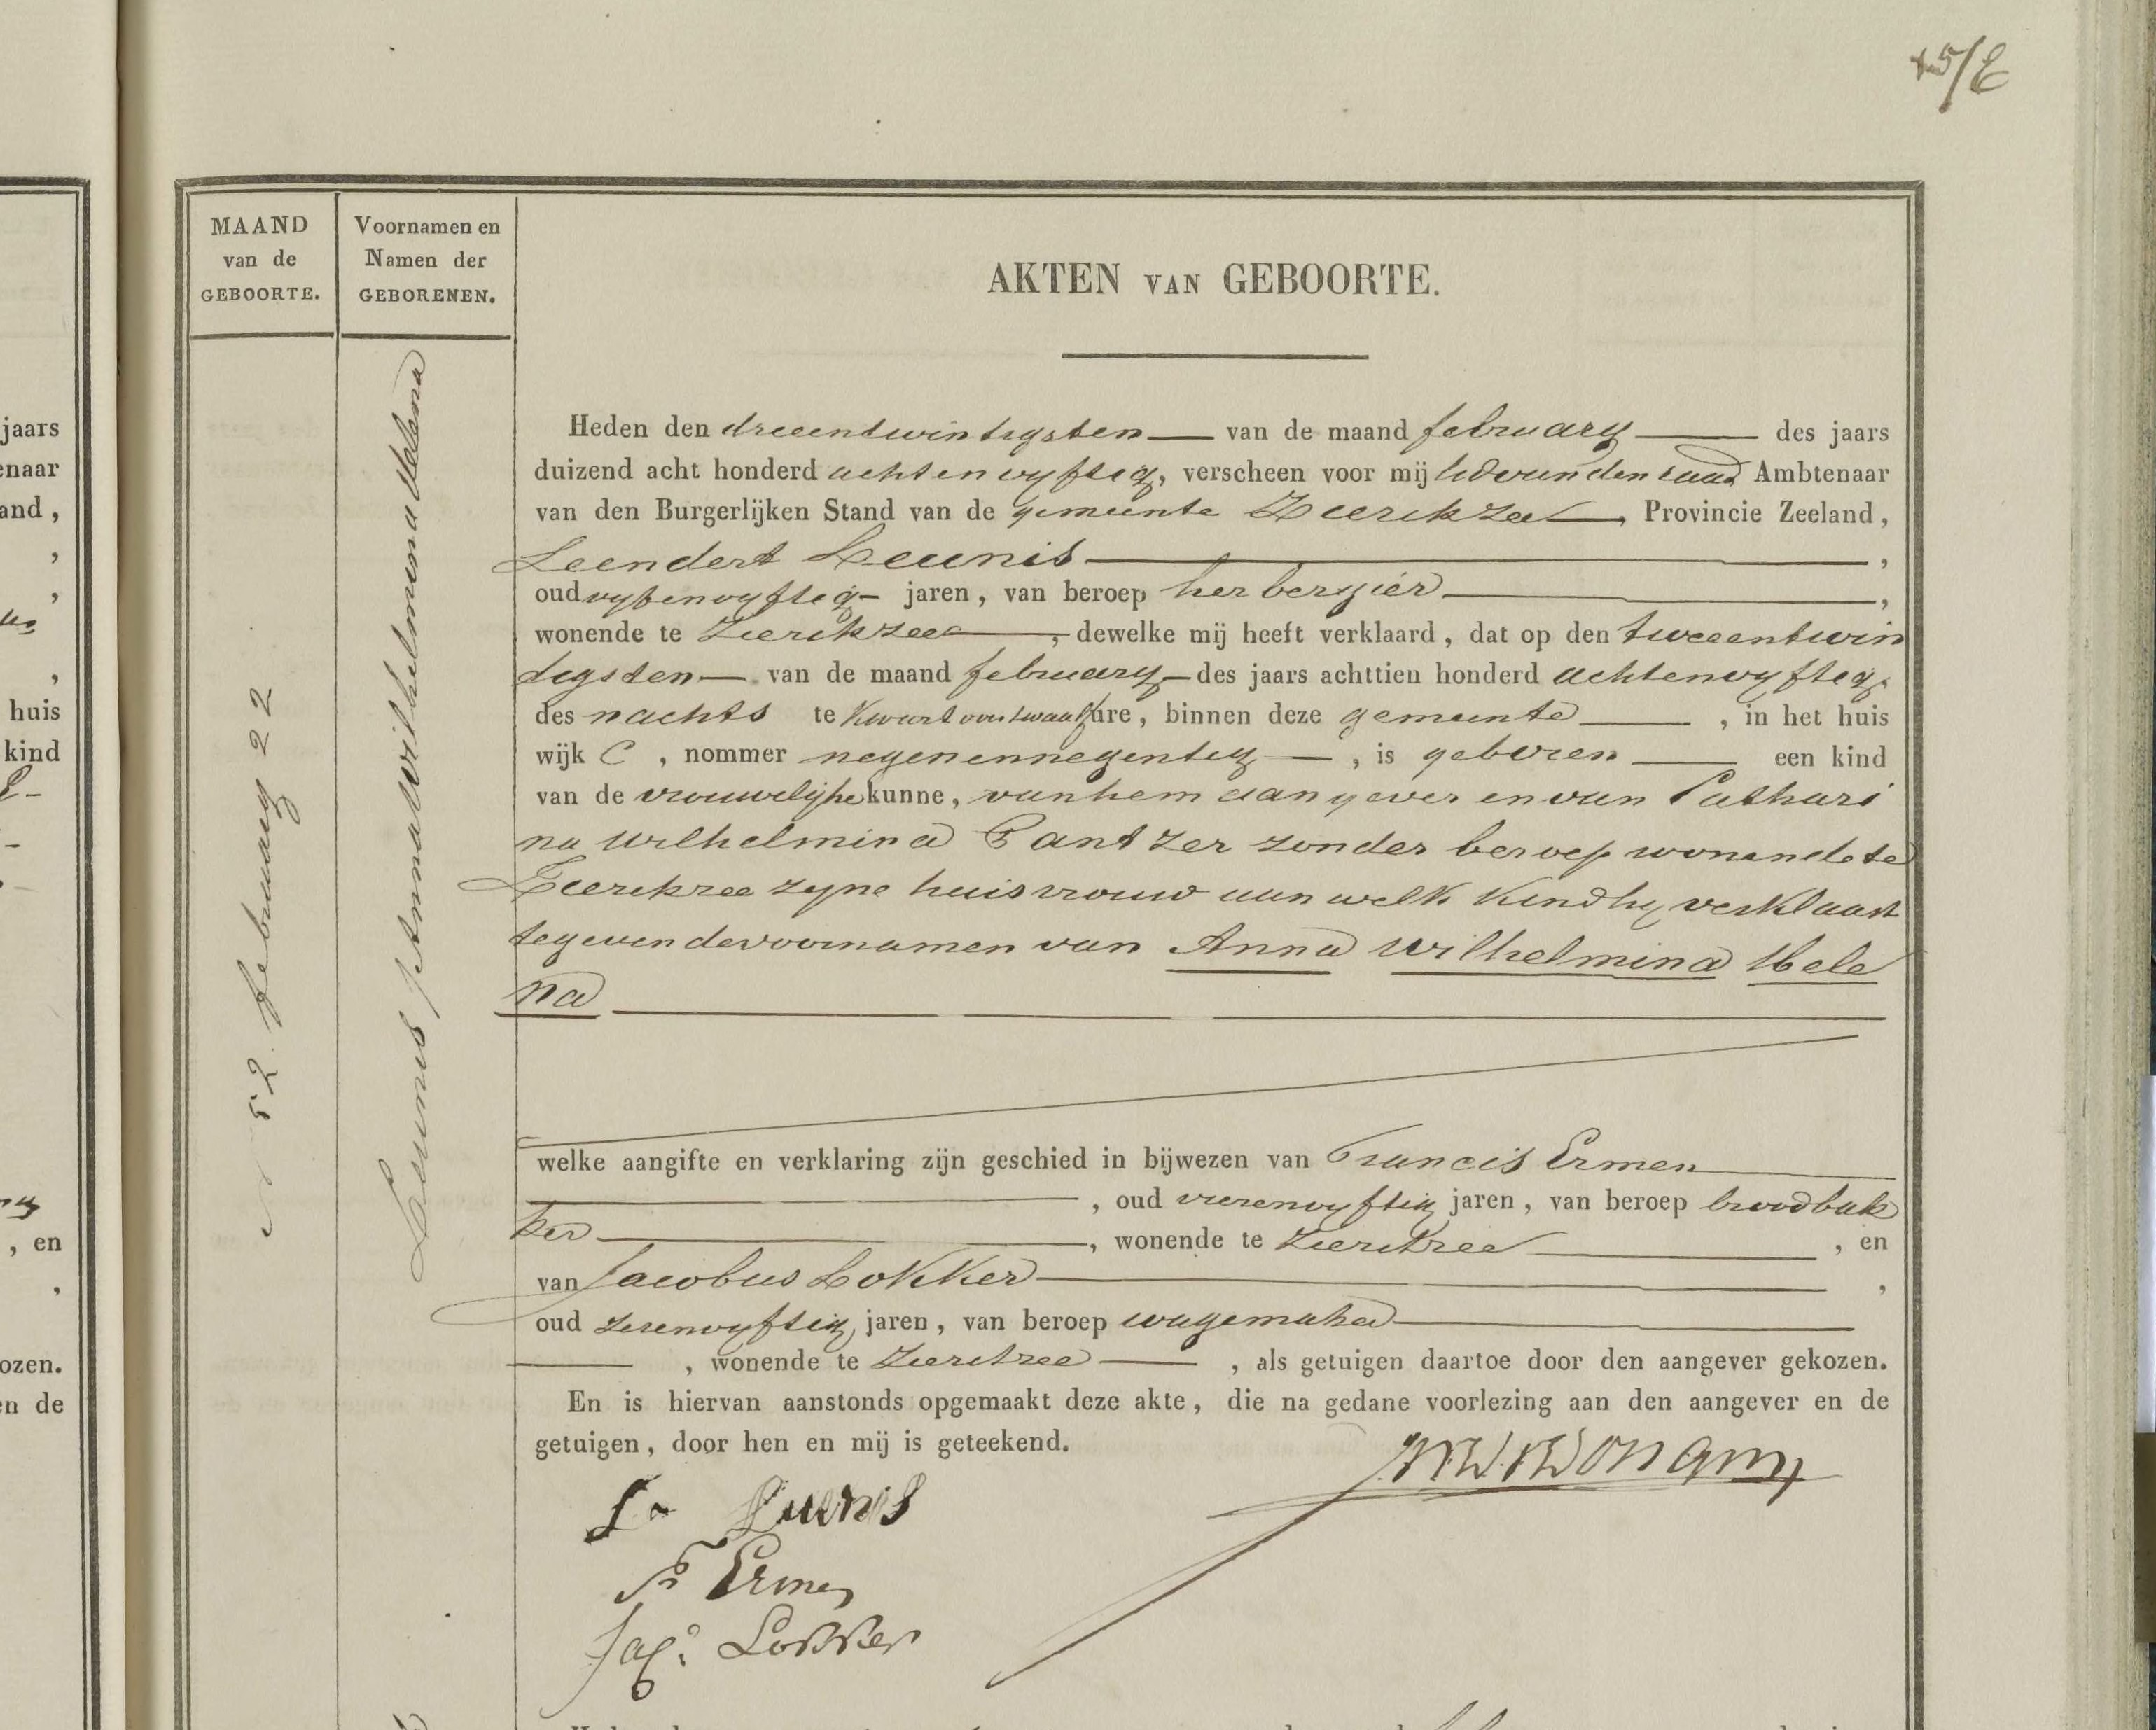 MAAND
van de
GEBOORTE.
Voornamen en
Namen der
GEBORENEN.
AKTEN VAN GEBOORTE.
52 february 22
Leunis Anna Wilhelmina Helena
Heden den drieentwintigsten van de maand february des jaars
duizend acht honderd achtenvyftig, verscheen voor mij lid van den raad Ambtenaar
van den Burgerlijken Stand van de gemeente Zierikzee, Provincie Zeeland,
Leendert Leunis,
oud vyfenvyftig jaren, van beroep herbergier,
wonende te Zierikzee, dewelke mij heeft verklaard, dat op den tweeentwin
tigsten van de maand february des jaars achttien honderd achtenvyftig,
des nachts te Kwart voor twaalf ure, binnen deze gemeente, in het huis
wijk C, nommer negenennegentig, is geboren een kind
van de vrouwelijke kunne, van hem aangever en van Cathari
na Wilhelmina Pantzer zonder beroep wonende te
Zierikzee zyne huisvrouw aan welk Kind hy verklaart
te geven de voornamen van Anna Wilhelmina Hele
na
welke aangifte en verklaring zijn geschied in bijwezen van Francis Ermen
, oud vierenvyftig jaren, van beroep broodbak
ker, wonende te Zierikzee, en
van Jacobus Lokker,
oud zevenvyftig jaren, van beroep wagemaker
, wonende te Zierikzee, als getuigen daartoe door den aangever gekozen.
En is hiervan aanstonds opgemaakt deze akte, die na gedane voorlezing aan den aangever en de
getuigen, door hen en mij is geteekend.
Ln Leunis
Fs Ermen
Jacs Lokker
jaars
enaar
and,
huis
kind
, en
ozen.
en de